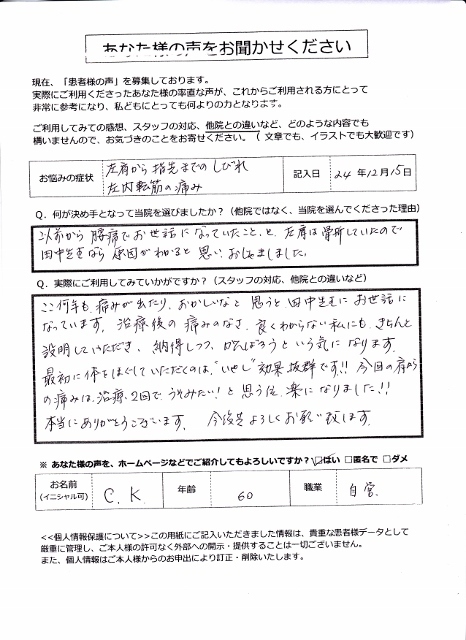 あなた様の声をお聞かせください
現在、「患者様の声」を募集しております。
実際にご利用くださったあなた様の率直な声が、これからご利用される方にとって
非常に参考になり、私どもにとっても何よりの力となります。
ご利用してみての感想、スタッフの対応、他院との違いなど、どのような内容でも
構いませんので、お気づきのことをお寄せください。（ 文章でも、イラストでも大歓迎です）
お悩みの症状 左肩から指先までのしびれ 記入日 24年12月15日
左内転筋の痛み
Q．何が決め手となって当院を選びましたか？（他院ではなく、当院を選んでくださった理由）
以前から腰痛でお世話になっていたことと、左肩は骨折していたので
田中先生なら原因がわかると思い、おじゃましました。
Q．実際にご利用してみていかがですか？（スタッフの対応、他院との違いなど）
ここ何年も痛みがあたり、おかしいなと思うと田中先生にお世話に
なっています。治療後の痛みのなさ、良くわからない私にもきちんと
説明していただき、納得しつつ、がんばろうという気になります。
最初に体をほぐしていただくのは、"いやし"効果抜群です!!今回の肩から
の痛みは、治療2回でうそみたい!と思う位、楽になりました!!
本当にありがとうございます。今後共よろしくお願い致します。
※ あなた様の声を、ホームページなどでご紹介してもよろしいですか？ ☑はい □匿名で □ダメ
お名前 C.K 年齢 60 職業 自営
（イニシャル可）
<<個人情報保護について>>この用紙にご記入いただきました情報は、貴重な患者様データとして
厳重に管理し、ご本人様の許可なく外部への開示・提供することは一切ございません。
また、個人情報はご本人様からのお申出により訂正・削除いたします。